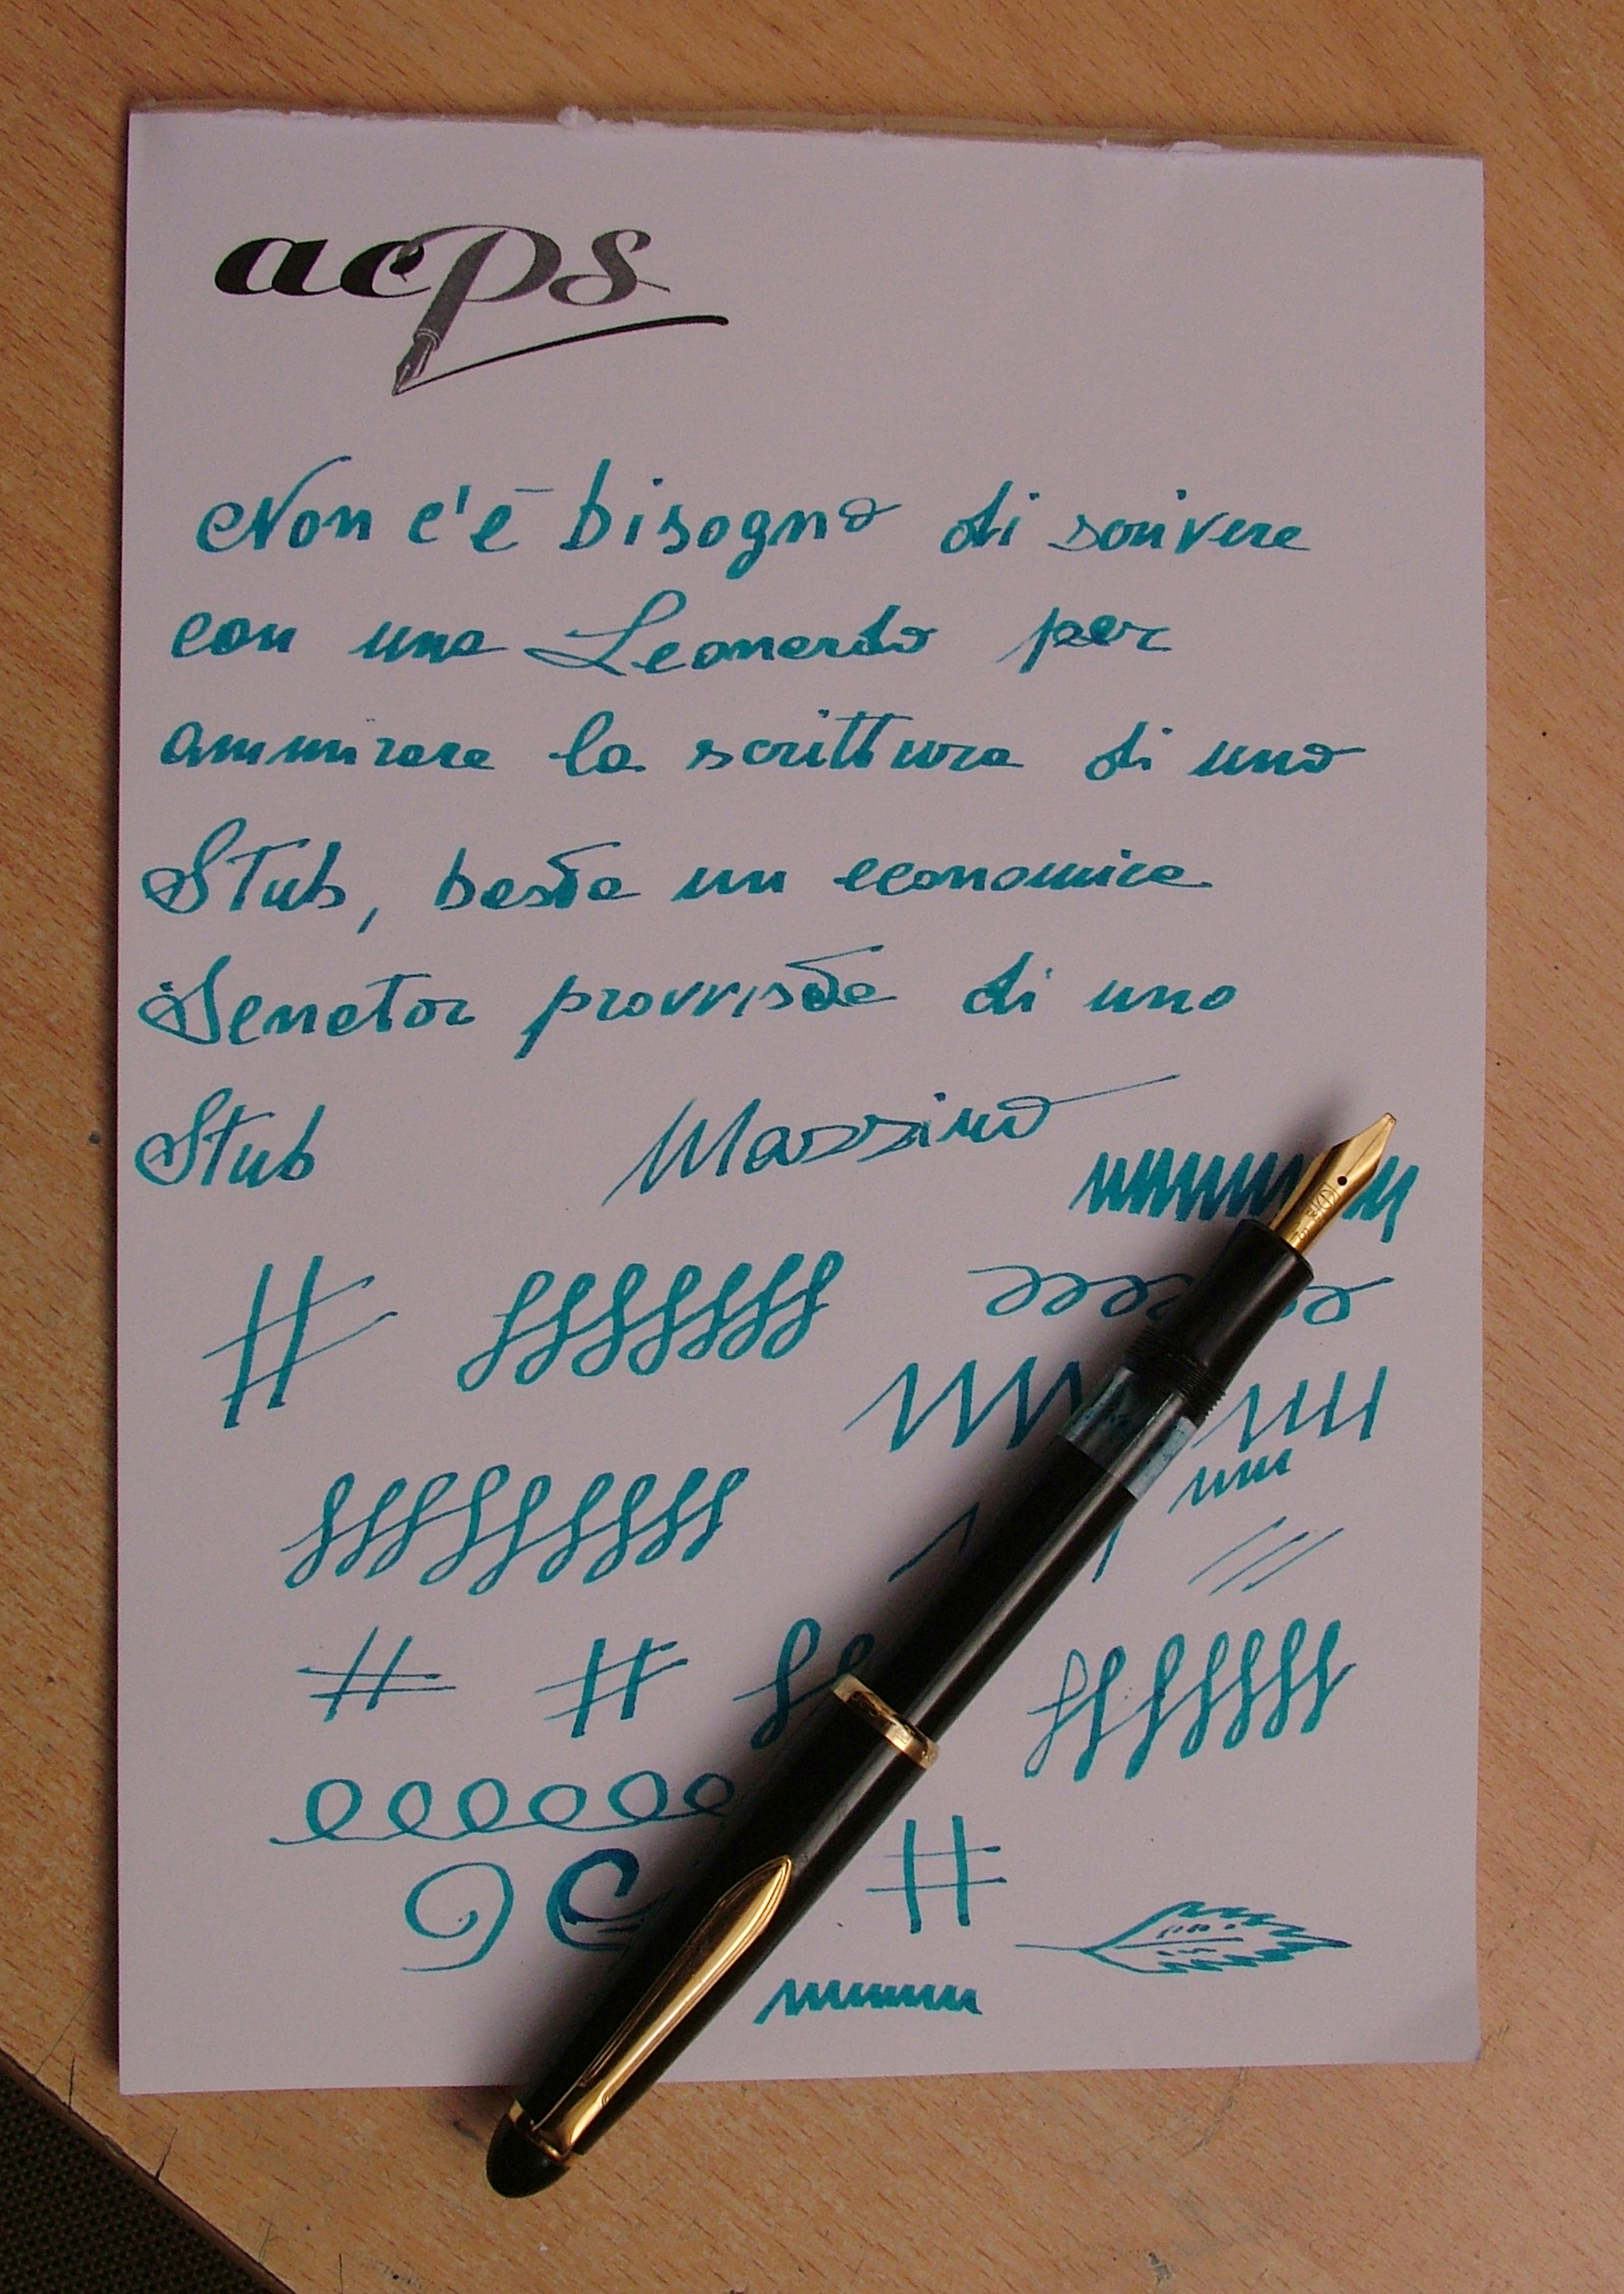 acps
Non c'è bisogno di scrivere
con una Leonardo per
ammirare la scrittura di uno
Stub, basta un economica
Senator provvista di uno
Stub Massimo